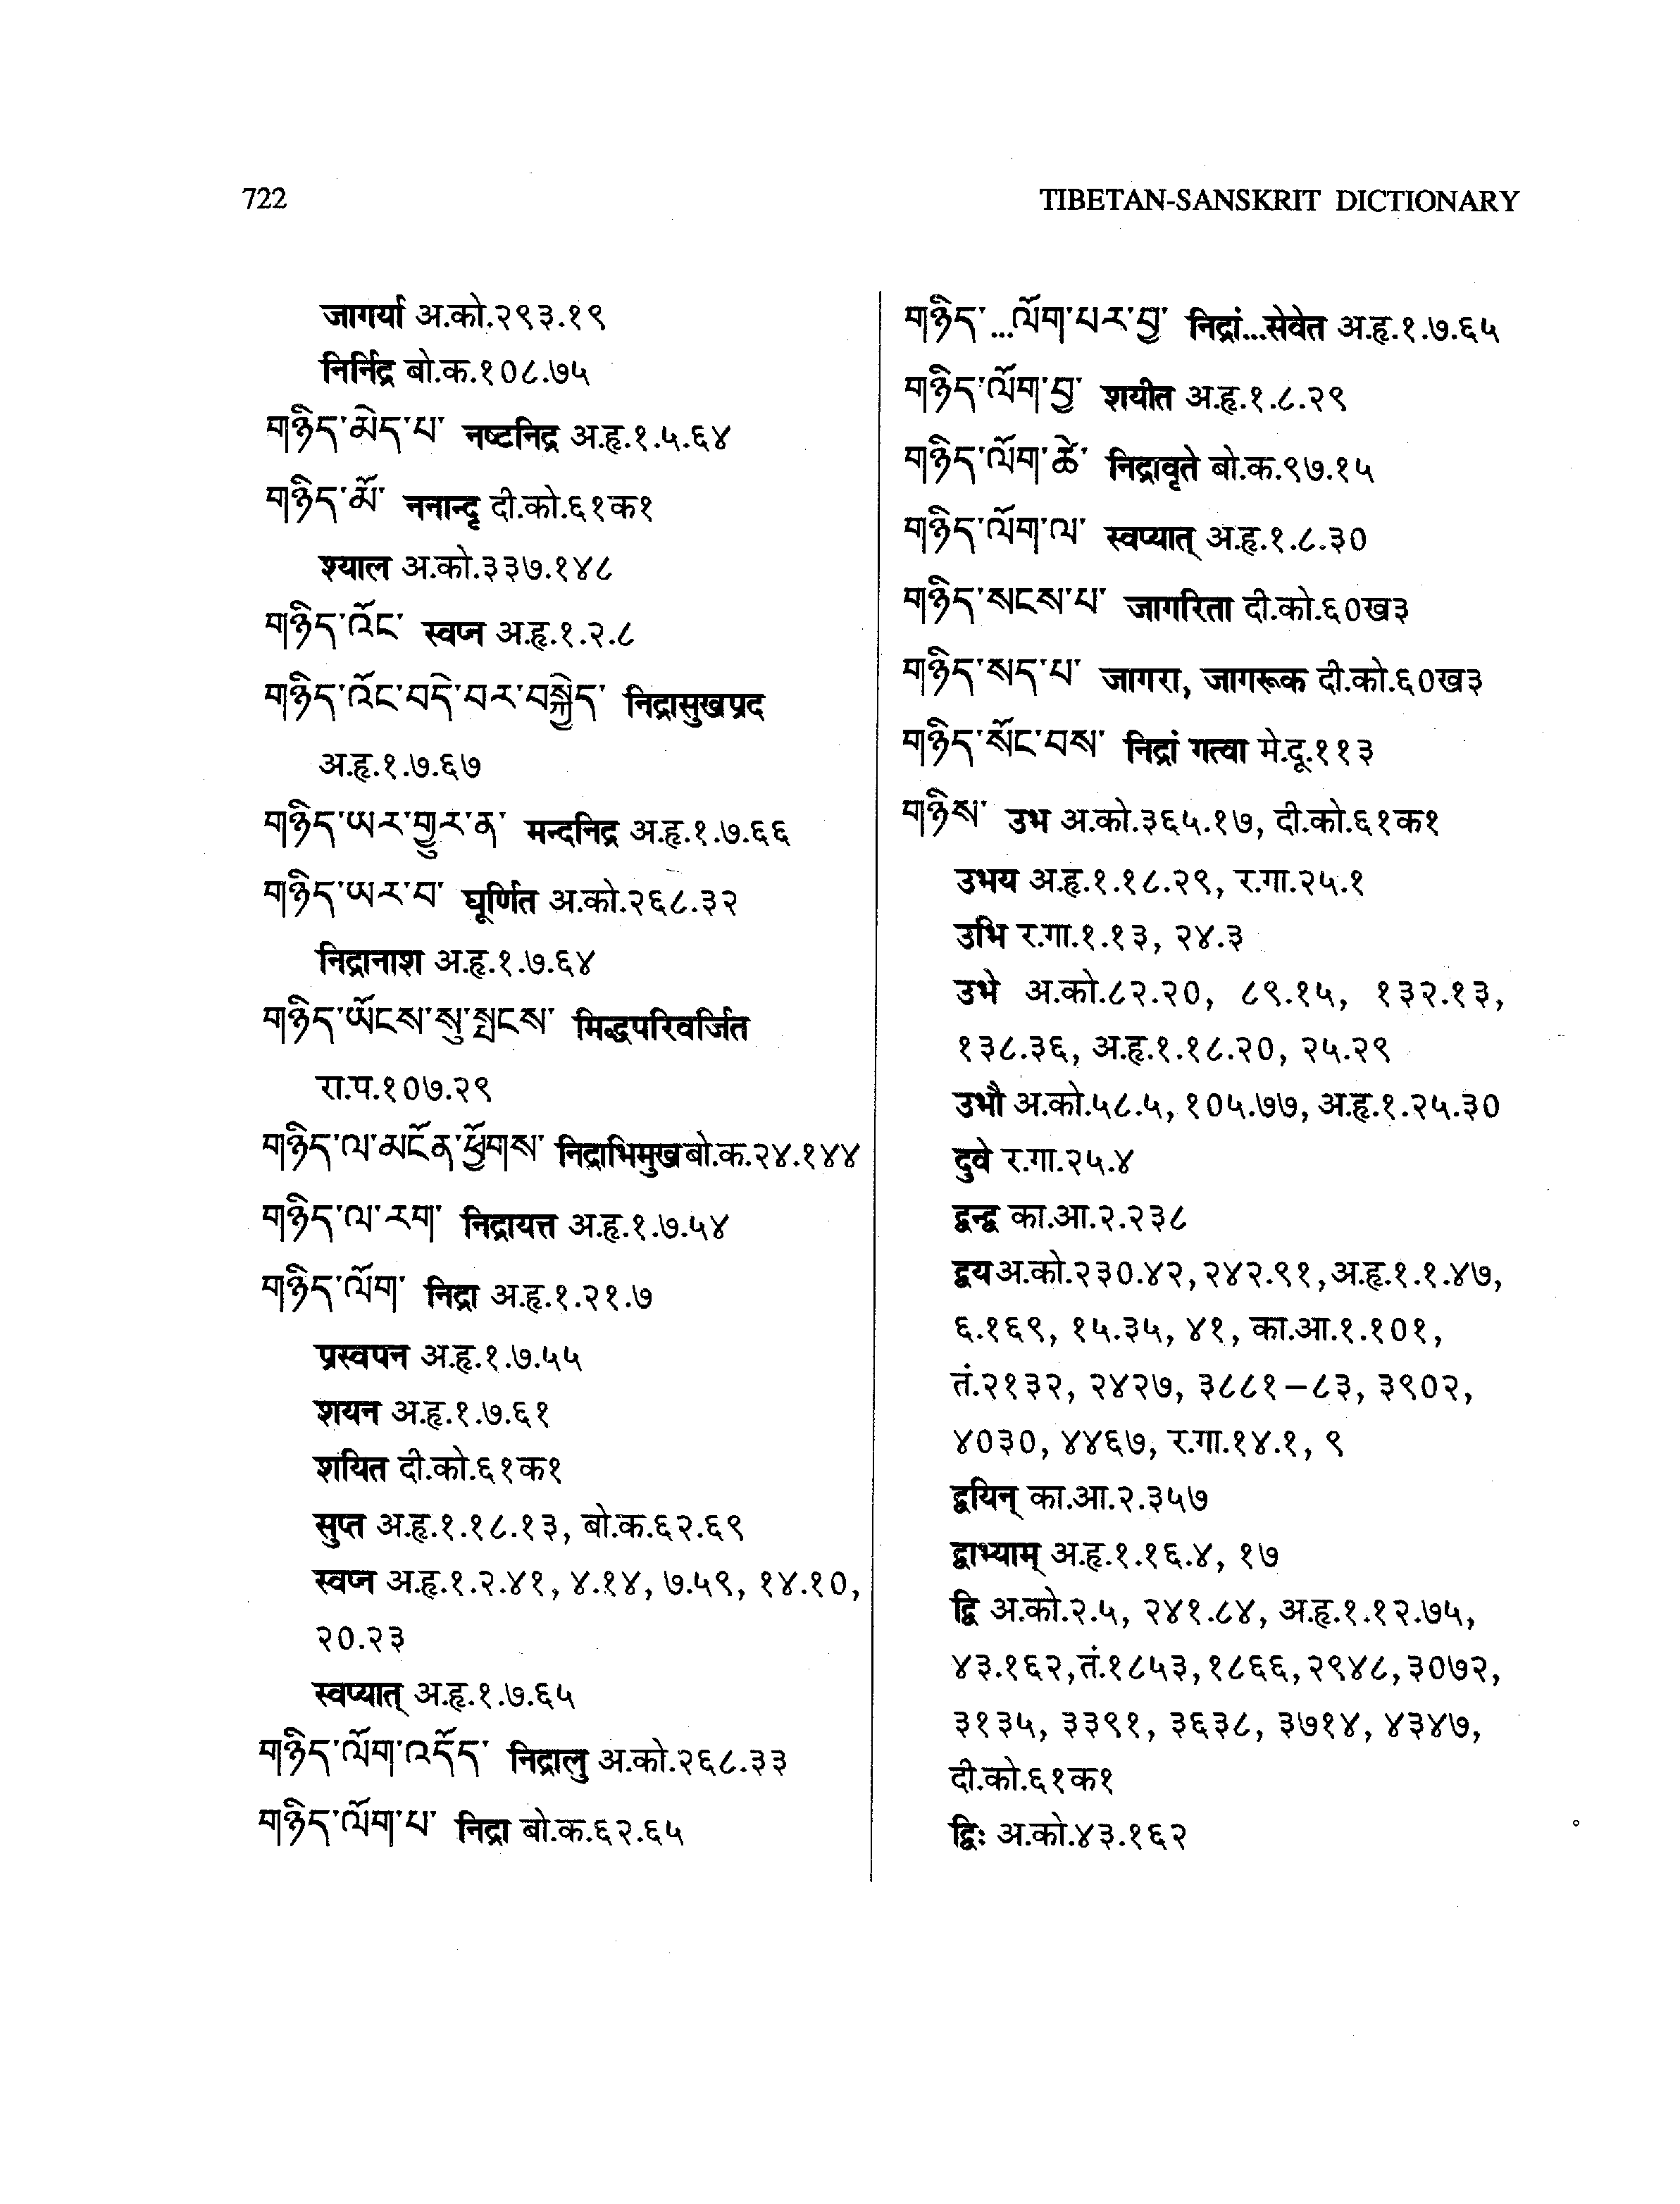 722
TIBETAN-SANSKRIT DICTIONARY
जागर्या अ.को.२९३.१९
निर्निद्र बो.क.१०८.७५
གཉིད་མེད་པ་ नष्टनिद्र अ.हृ.१.५.६४
གཉིད་མོ་ ननान्दृ दी.को.६१क१
श्याल अ.को.३३७.१४८
གཉིད་འོང་ स्वप्न अ.हृ.१.२.८
གཉིད་འོང་བདེ་བར་བསྐྱེད་ निद्रासुखप्रद
अ.हृ.१.७.६७
གཉིད་ཡར་གྱུར་ན་ मन्दनिद्र अ.हृ.१.७.६६
གཉིད་ཡར་བ་ घूर्णित अ.को.२६८.३२
निद्रानाश अ.हृ.१.७.६४
གཉིད་ཡོངས་སུ་སྤངས་ मिद्धपरिवर्जित
रा.प.१०७.२९
གཉིད་ལ་མངོན་ཕྱོགས་ निद्राभिमुख बो.क.२४.१४४
གཉིད་ལ་རག་ निद्रायत्त अ.हृ.१.७.५४
གཉིད་ལོག་ निद्रा अ.हृ.१.२१.७
प्रस्वपन अ.हृ.१.७.५५
शयन अ.हृ.१.७.६१
शयित दी.को.६१क१
सुप्त अ.हृ.१.१८.१३, बो.क.६२.६९
स्वप्न अ.हृ.१.२.४१, ४.१४, ७.५९, १४.१०,
२०.२३
स्वप्यात् अ.हृ.१.७.६५
གཉིད་ལོག་འདོད་ निद्रालु अ.को.२६८.३३
གཉིད་ལོག་པ་ निद्रा बो.क.६२.६५
གཉིད་...ལོག་པར་བྱ་ निद्रां...सेवेत अ.हृ.१.७.६५
གཉིད་ལོག་བྱ་ शयीत अ.हृ.१.८.२९
གཉིད་ལོག་ཚེ་ निद्रावृते बो.क.९७.१५
གཉིད་ལོག་ལ་ स्वप्यात् अ.हृ.१.८.३०
གཉིད་སངས་པ་ जागरिता दी.को.६०ख३
གཉིད་སད་པ་ जागरा, जागरूक दी.को.६०ख३
གཉིད་སོང་བས་ निद्रां गत्वा मे.दू.११३
གཉིས་ उभ अ.को.३६५.१७, दी.को.६१क१
उभय अ.हृ.१.१८.२९, र.गा.२५.१
उभि र.गा.१.१३, २४.३
उभे अ.को.८२.२०, ८९.१५, १३२.१३,
१३८.३६, अ.हृ.१.१८.२०, २५.२९
उभौ अ.को.५८.५, १०५.७७, अ.हृ.१.२५.३०
दुवे र.गा.२५.४
द्वन्द्व का.आ.२.२३८
द्वय अ.को.२३०.४२, २४२.९१, अ.हृ.१.१.४७,
६.१६९, १५.३५, ४१, का.आ.१.१०१,
तं.२१३२, २४२७, ३८८१–८३, ३९०२,
४०३०, ४४६७, र.गा.१४.१, ९
द्वयिन् का.आ.२.३५७
द्वाभ्याम् अ.हृ.१.१६.४, १७
द्वि अ.को.२.५, २४१.८४, अ.हृ.१.१२.७५,
४३.१६२, तं.१८५३, १८६६, २९४८, ३०७२,
३१३५, ३३९१, ३६३८, ३७१४, ४३४७,
दी.को.६१क१
द्विः अ.को.४३.१६२